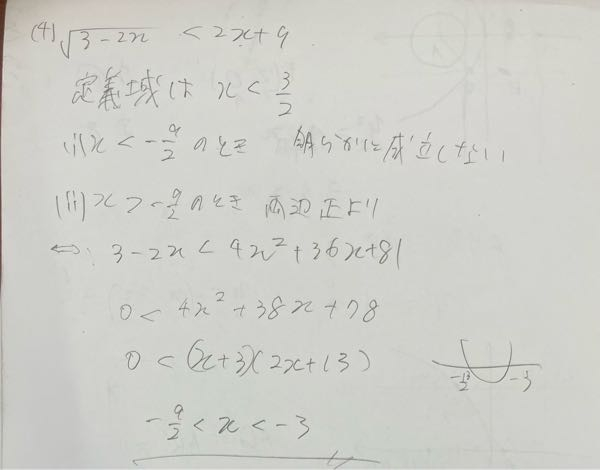 (4) √3-2x < 2x+9
定義域は x < 3/2
(i) x < -9/2 のとき 明らかに成立しない
(ii) x > -9/2 のとき 両辺正より
⇔ 3-2x < 4x²+36x+81
0 < 4x²+38x+78
0 < (x+3)(2x+13)
-13/2 -3
-9/2 < x < -3